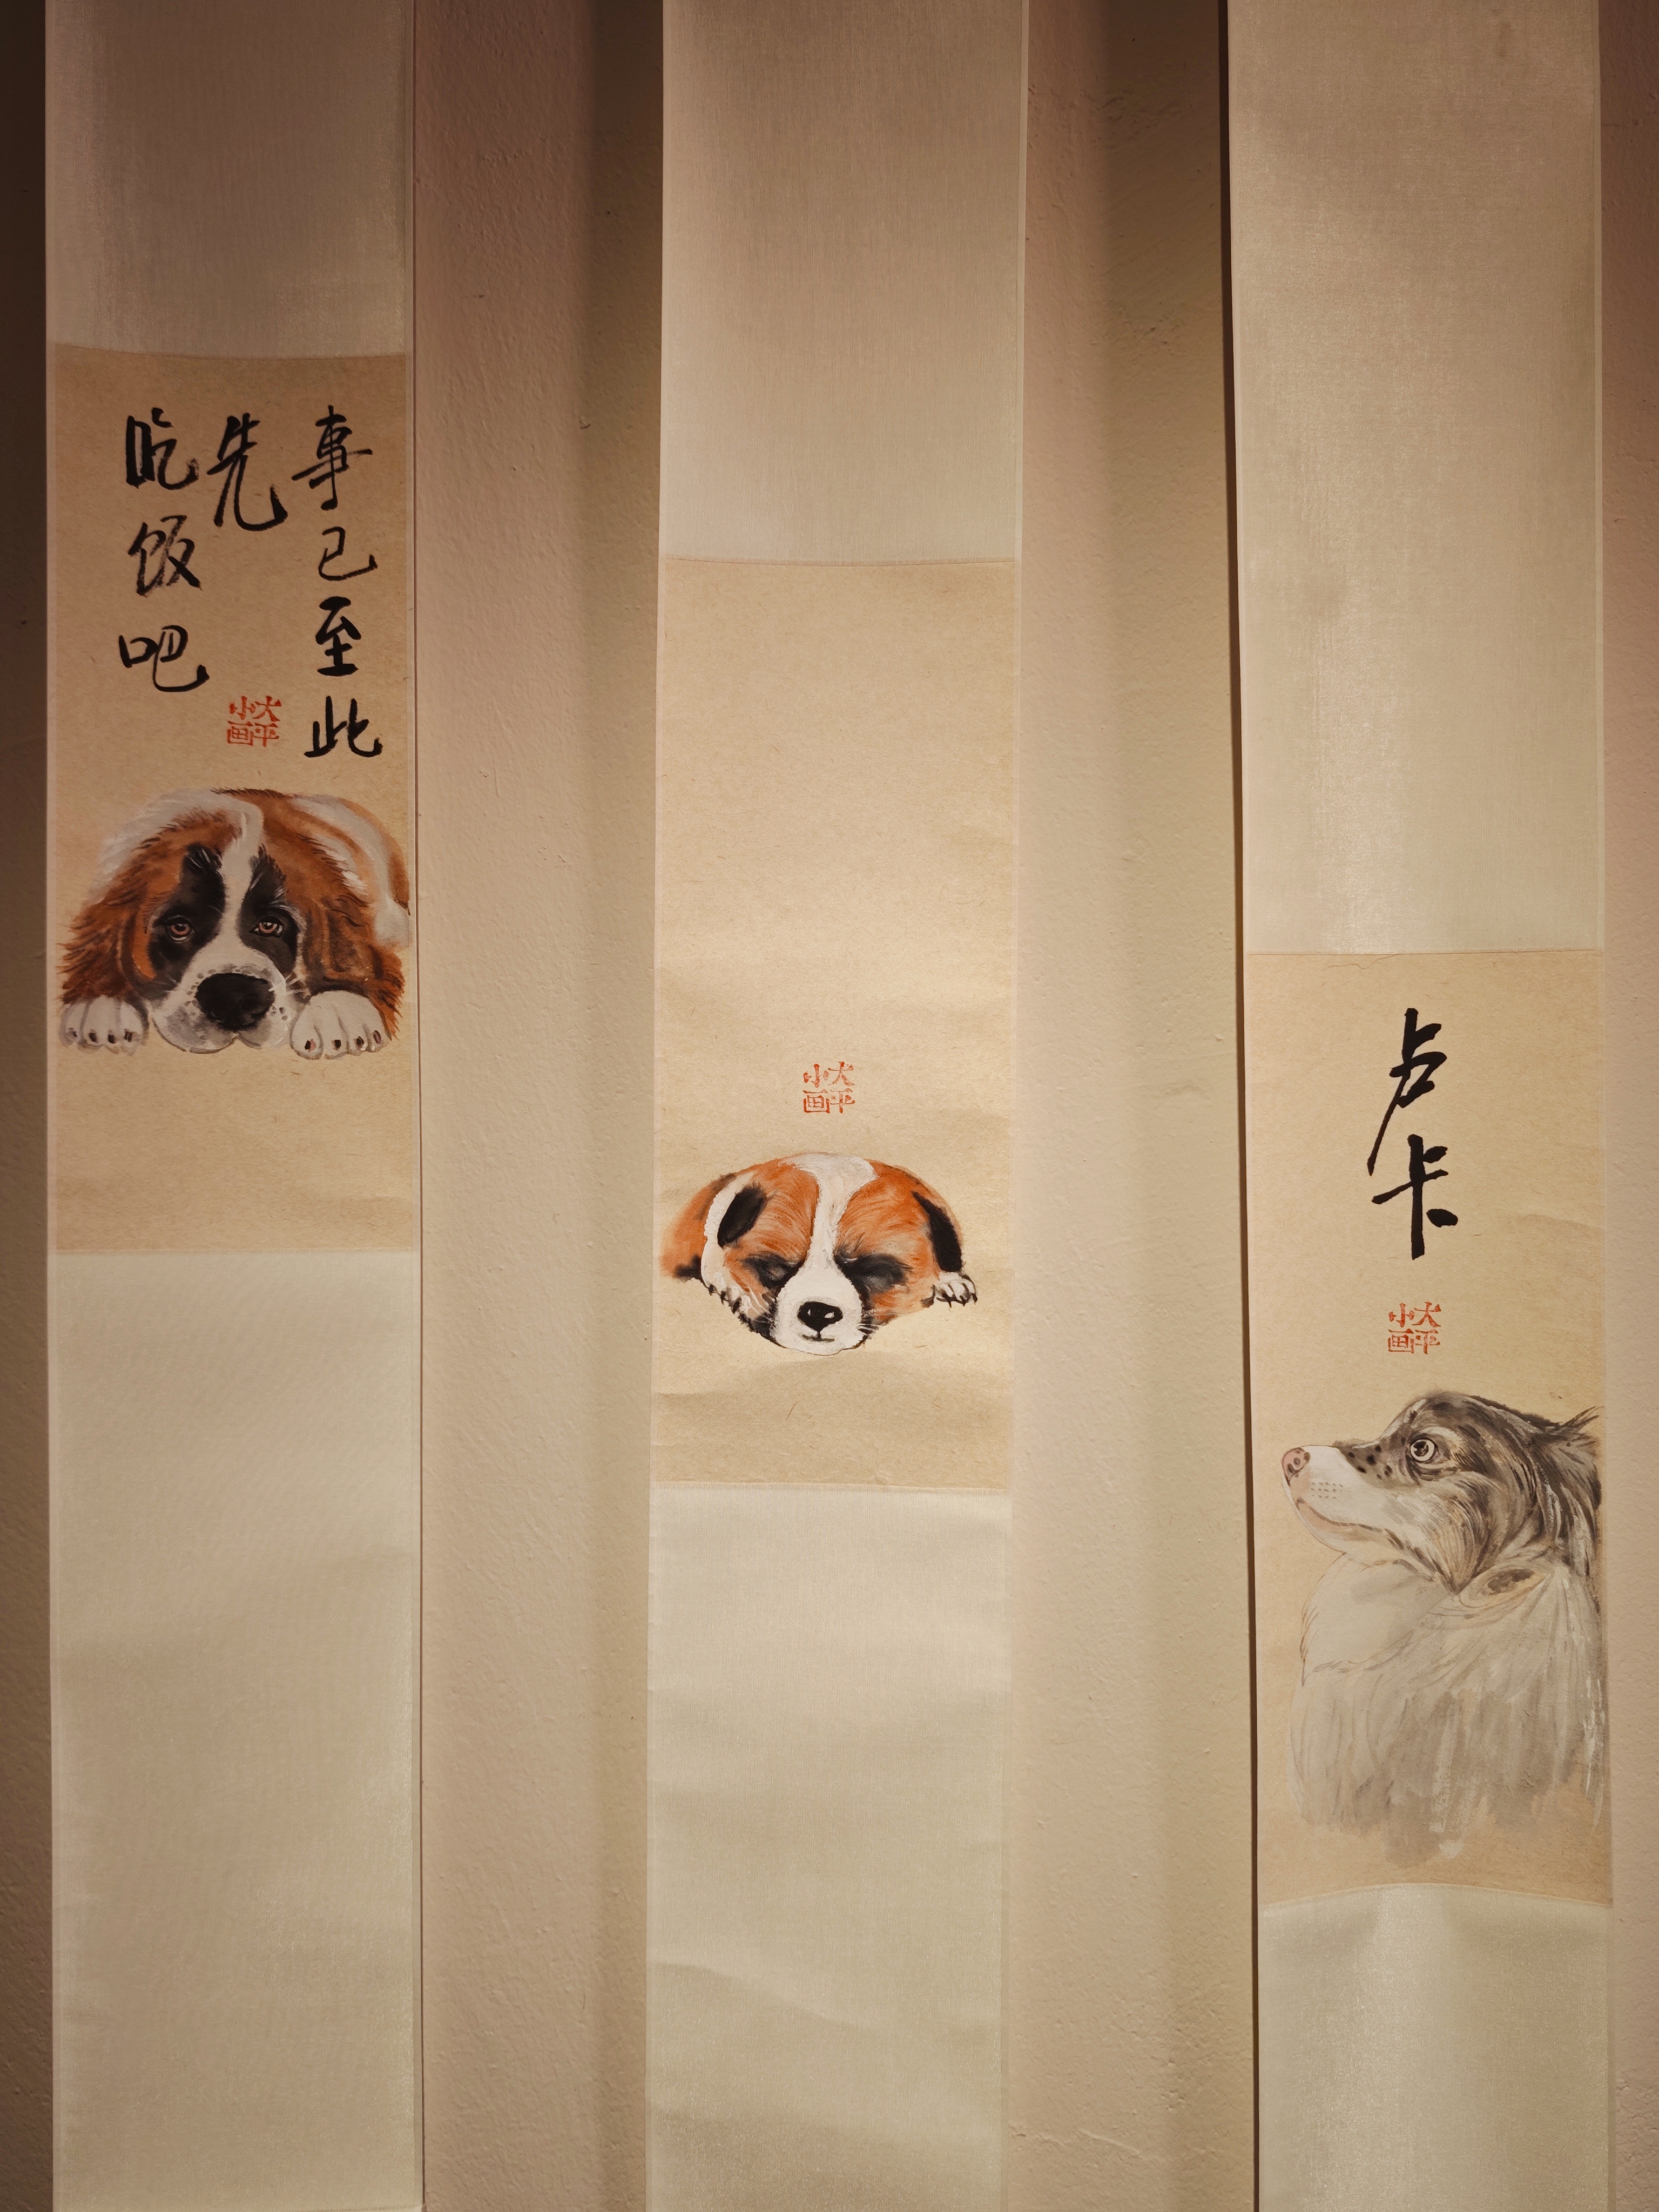 事已至此
先
吃饭吧
大平
小画
大平
小画
卢卡
大平
小画